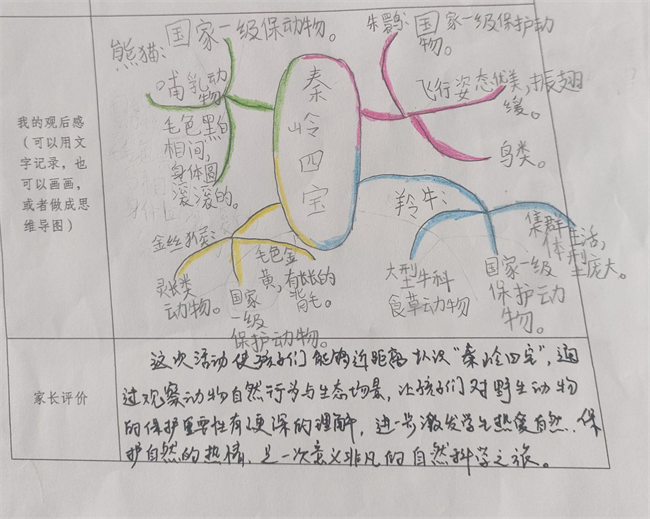 我的观后感
(可以用文
字记录,也
可以画画,
或者做成思
维导图)
秦
岭
四
宝
熊猫:
国家一级保动物。
哺乳动
物
毛色黑白
相间,
身体圆
滚滚的。
朱鹮:
国家一级保护动
物。
飞行姿态优美,振翅
缓。
鸟类。
金丝猴:
灵长类
动物。
国家
一级
保护动物。
毛色金
黄,有长长的
背毛。
羚牛:
大型牛科
食草动物
国家一级
保护动
物。
集群生活,
体型庞大。
家长评价
这次活动使孩子们能够近距离认识“秦岭四宝”,通
过观察动物自然行为与生态场景,让孩子们对野生动物
的保护重要性有更深的理解,进一步激发学生热爱自然、保
护自然的热情,是一次意义非凡的自然科学之旅。